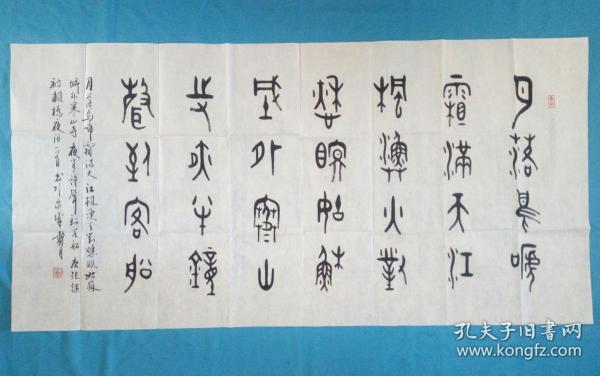 月落烏啼
霜滿天江
楓漁火對
愁眠姑蘇
城外寒山
寺夜半鐘
聲到客船
月落烏啼霜滿天江楓漁火對愁眠姑蘇
城外寒山寺夜半鐘聲到客船唐張繼
詩楓橋夜泊一首
孔夫子旧书网
www.kongfz.com